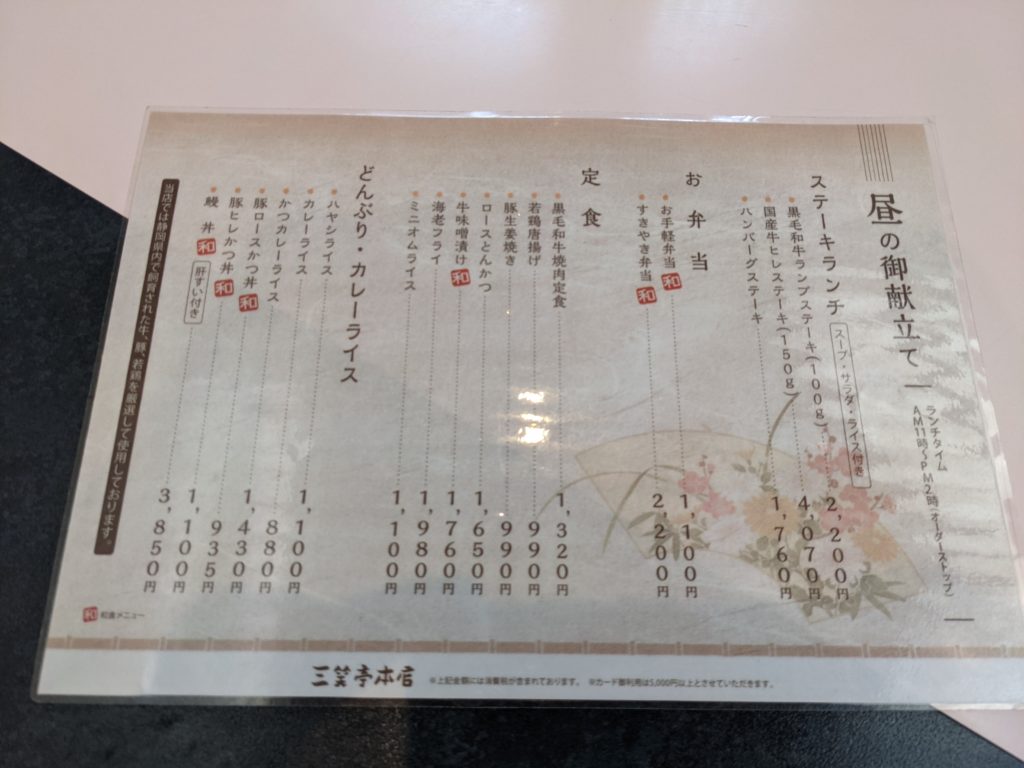 昼の御献立て
ランチタイム
AM11時～PM2時（オーダーストップ）
ステーキランチ スープ・サラダ・ライス付き
黒毛和牛ランプステーキ(100g) 2,200円
国産牛ヒレステーキ(150g) 4,070円
ハンバーグステーキ 1,760円
お弁当
お手軽弁当 和 1,100円
すきやき弁当 和 2,200円
定食
黒毛和牛焼肉定食 1,320円
若鶏唐揚げ 990円
豚生姜焼き 990円
ロースとんかつ 1,650円
牛味噌漬け 和 1,760円
海老フライ 1,980円
ミニオムライス 1,100円
どんぶり・カレーライス
ハヤシライス 1,100円
カレーライス 880円
かつカレーライス 1,430円
豚ロースかつ丼 和 935円
豚ヒレかつ丼 和 1,100円
鰻丼 和 肝すい付き 3,850円
当店では静岡県内で飼育された牛、豚、若鶏を厳選して使用しております。
和 和食メニュー
三笑亭本店 ※上記金額には消費税が含まれております。 ※カード御利用は5,000円以上とさせていただきます。